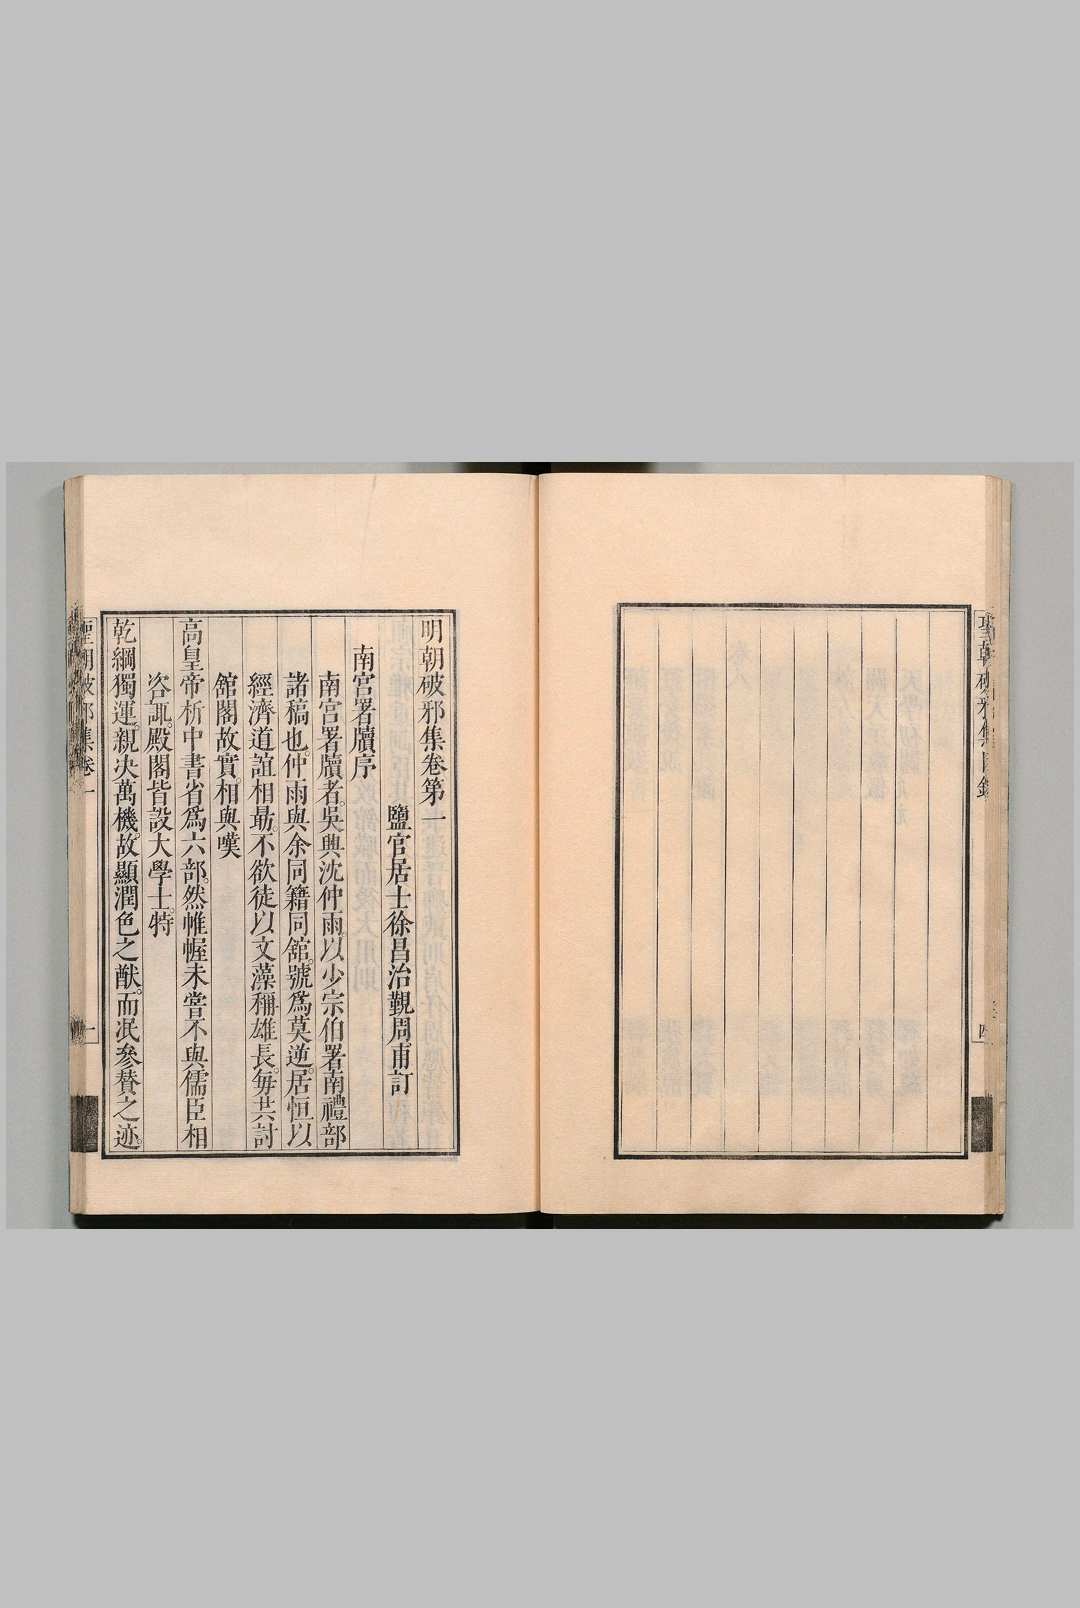 聖朝破邪集目錄
四
明朝破邪集卷第一
鹽官居士徐昌治覲周甫訂
南宮署牘序
南宮署牘者。吳興沈仲雨。以少宗伯署南禮部
諸稿也。仲雨與余同籍同舘。號爲莫逆。居恒以
經濟道誼相勗。不欲徒以文藻稱雄長。每共討
舘閣故實。相與嘆
高皇帝析中書省爲六部。然帷幄未嘗不與儒臣相
咨諏。殿閣皆設大學士。特
乾綱獨運。親決萬機。故顯潤色之猷。而泯參贊之迹。
聖朝破邪集卷一
一